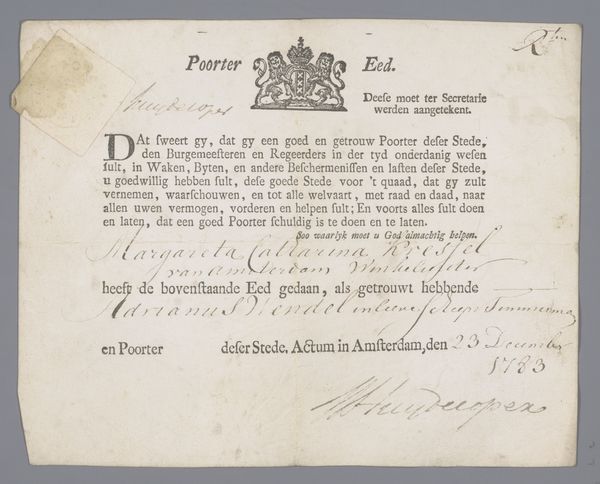 Poorter Eed.
Deese moet ter Secretarie
werden aangetekent.
Huydecoper
DAt sweert gy, dat gy een goed en getrouw Poorter deser Stede,
den Burgemeesteren en Regeerders in der tyd onderdanig wesen
sult, in Waken, Byten, en andere Beschermenissen en lasten deser Stede,
u goedwillig hebben sult, dese goede Stede voor 't quaad, dat gy zult
vernemen, waarschouwen, en tot alle welvaart, met raad en daad, naar
allen uwen vermogen, vorderen en helpen sult; En voorts alles sult doen
en laten, dat een goed Poorter schuldig is te doen en te laten.
Soo waarlyk moet u God almachtig helpen.
Margareta Catharina Kressel
van Amsterdam Winkelierster
heeft de bovenstaande Eed gedaan, als getrouwt hebbende
Adrianus Wendel
en Poorter deser Stede. Actum in Amsterdam, den 23 December
1783
Huydecoper